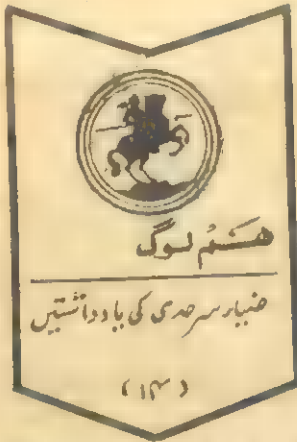 ھَسَمُ لوگ
ضیاء سرحدی کی یادداشتیں
(۱۴)